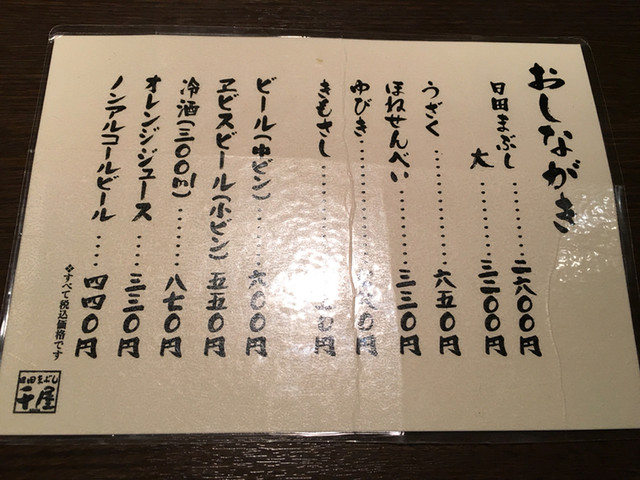 おしながき
日田まぶし・・・・・・二六〇〇円
大・・・・・・三二〇〇円
うざく・・・・・・・・六五〇円
ほねせんべい・・・・・・三三〇円
ゆびき
きもさし
ビール(中ビン)・・・・六〇〇円
ヱビスビール(小ビン)五五〇円
冷酒(三〇〇ml)・・・・八七〇円
オレンジジュース・・・・三三〇円
ノンアルコールビール・・・四四〇円
❖すべて税込価格です
日田まぶし
千屋